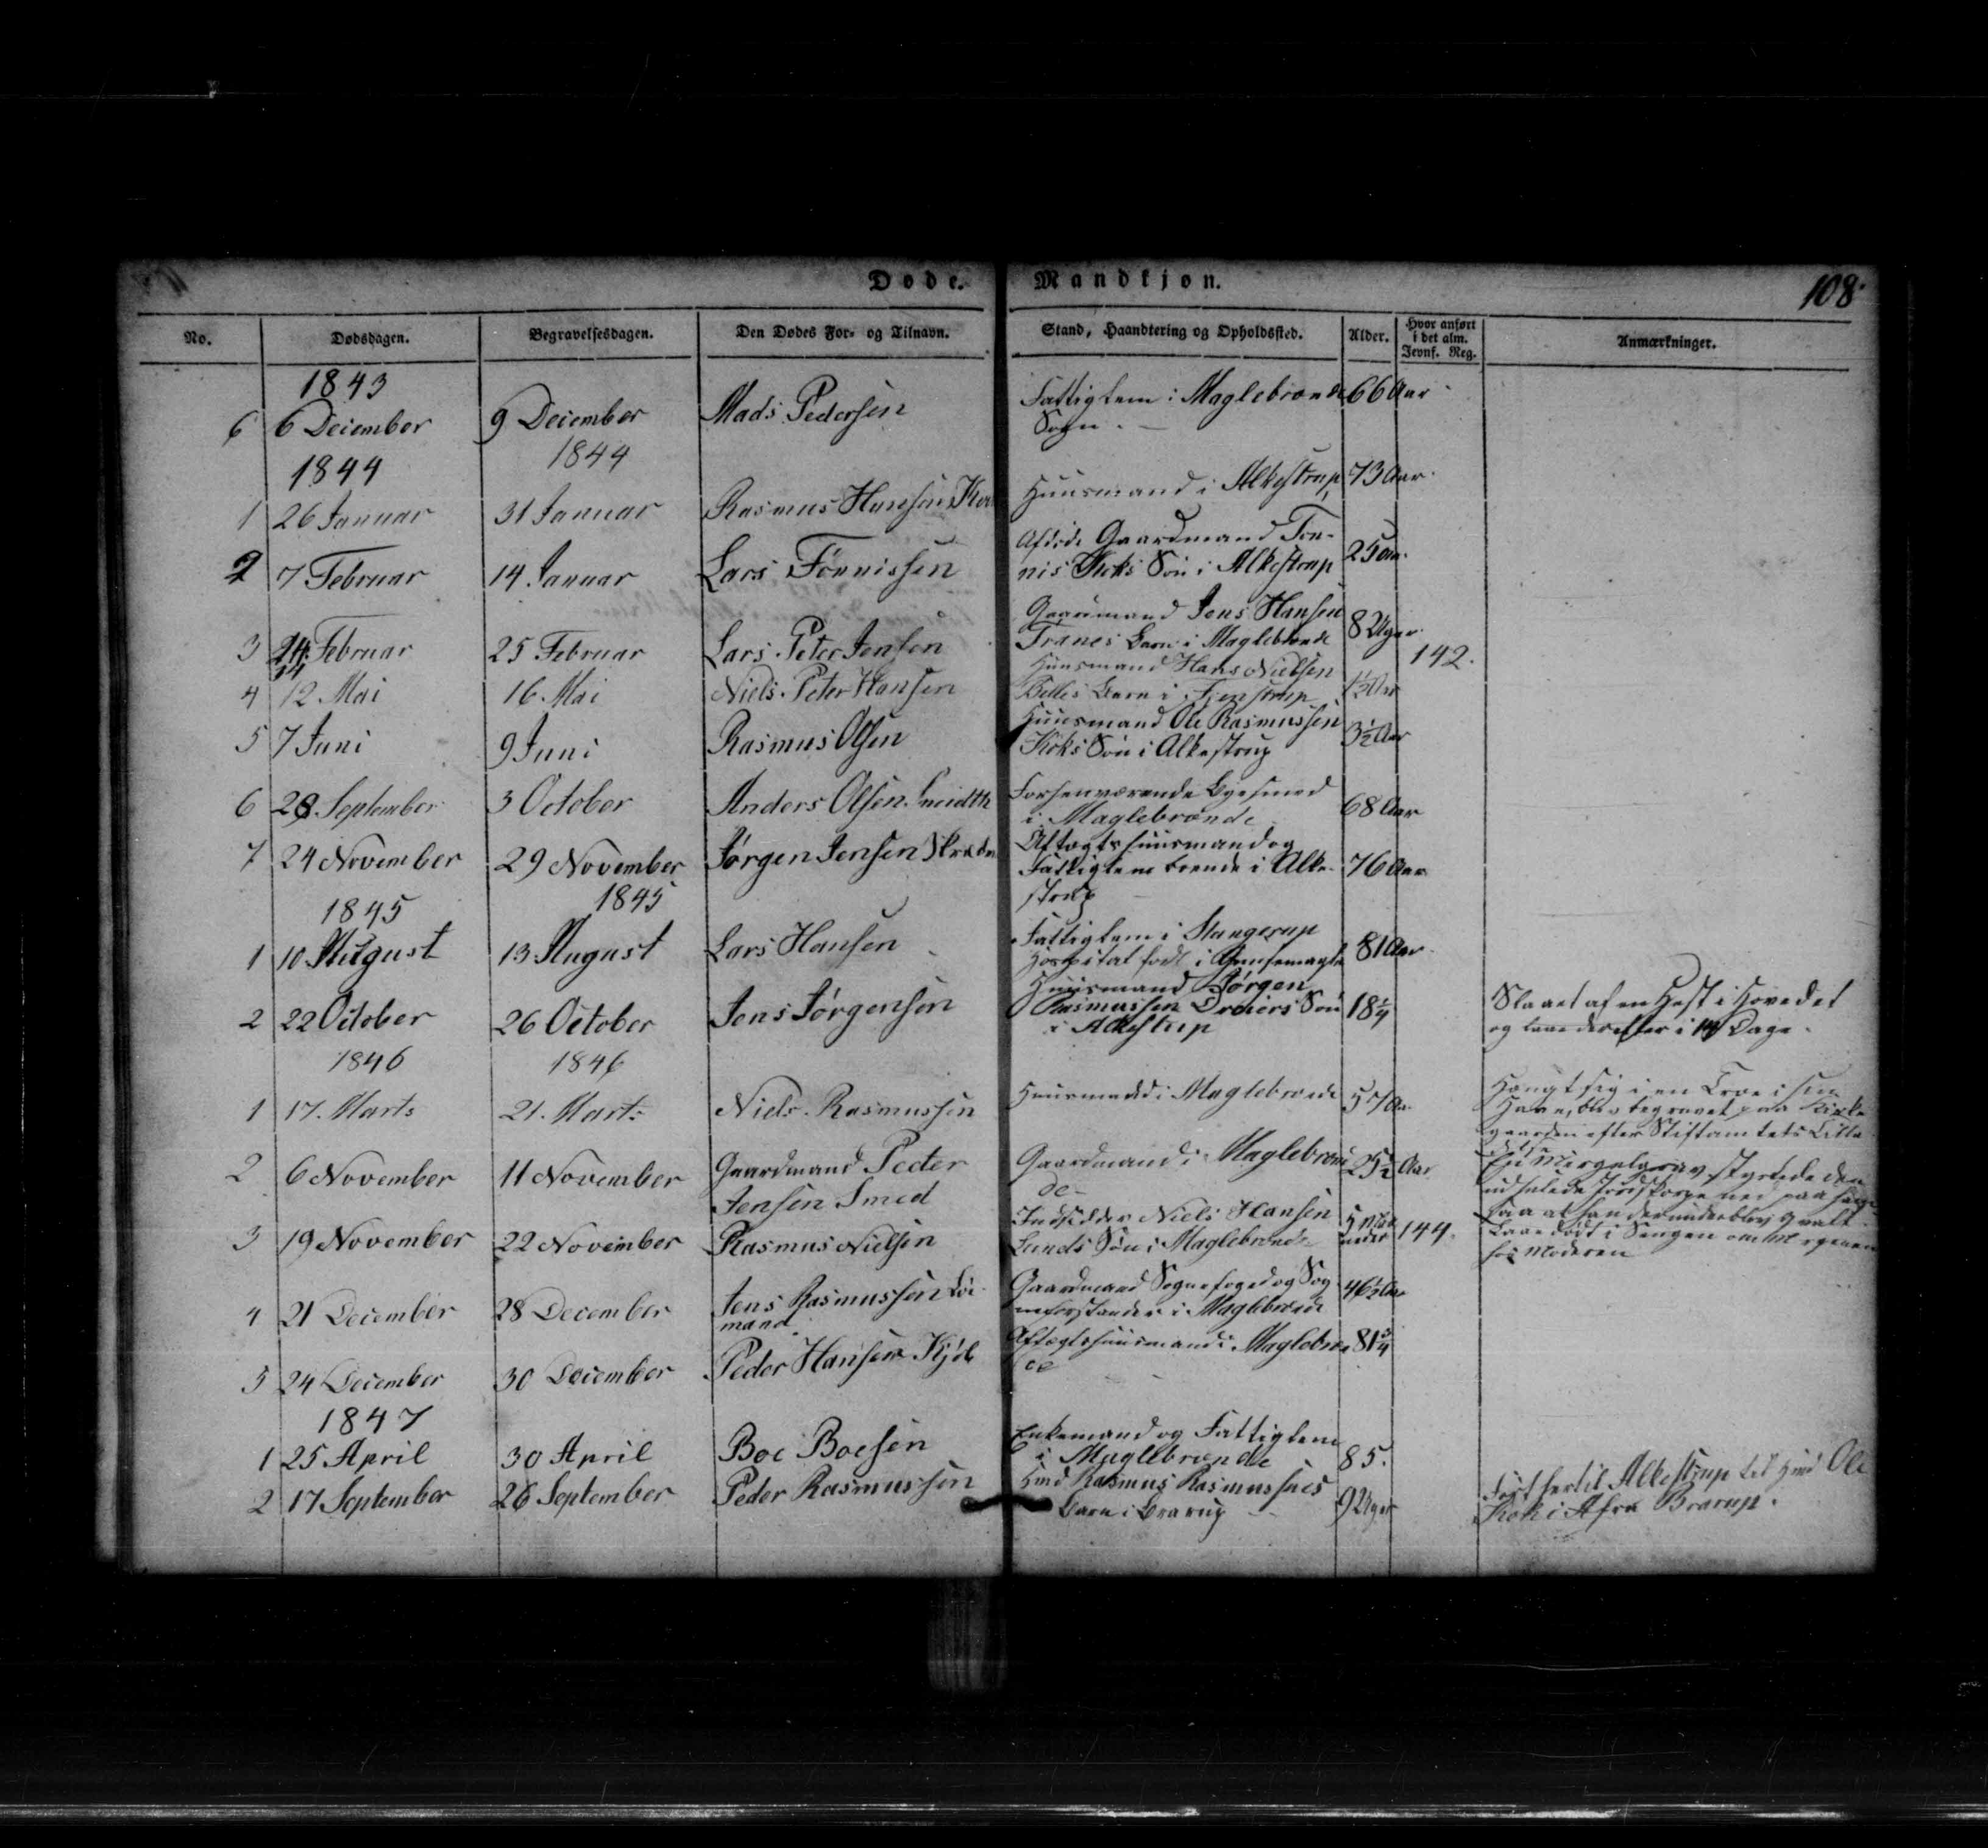 Døde. Mandkjøn.
108.
No. Dødsdagen. Begravelsesdagen. Den Dødes For- og Tilnavn. Stand, Haandtering og Opholdssted. Alder. Hvor anført i det alm. Jevnf. Reg. Anmærkninger.
1843
6 6 December 9 December Mads Pedersen Fattiglem i Maglebrænde 66 Aar
Sogn.
1844 1844
1 26 Januar 31 Januar Rasmus Hansen Huusmand i Alkestrup 73 Aar.
2 7 Februar 14 Januar Lars Tønnissen Afdøde Gaardmand Tøn-
nis Koks Søn i Alkestrup 25 Aar.
3 Februar 25 Februar Lars Peter Jensen Gaardmand Jens Hansen
Tranes Barn i Maglebrænde 8 Uger 142.
4 12 Mai 16. Mai Niels Peter Hansen Huusmand Hans Nielsen
Barn i 1½ Aar
5 7 Juni 9 Juni Rasmus Olsen Huusmand Ole Rasmussen
Koks Søn i Alkestrup 3½ Aar
6 28 September 3 October Anders Olsen Smidth Forhenværende Byesmed
i Maglebrænde 68 Aar
7 24 November 29 November Jørgen Jensen Aftægtshuusmand og
Fattiglem boende i Alke- 76 Aar
strup
1845 1845
1 10 August 13 August Lars Hansen Fattiglem i Stangerup
Hospital født i 81 Aar
2 22 October 26 October Jens Jørgensen Huusmand Jørgen
Rasmussen Dreiers Søn 18¼
i Alkestrup
Slaaet af en Hest i Hovedet
og laae derefter i 14 Dage.
1846 1846
1 17. Marts 21. Marts Niels Rasmussen Huusmand i Maglebrænde 57 Aar
Hængt sig i en Træe i sin
Have, blev begravet paa Kirke
gaarden efter Stiftamtets Tilla
delse
2 6 November 11 November Gaardmand Peder
Jensen Smed Gaardmand i Maglebræn
de 25½ Aar
En Mergelgrav styrtede den
udhulede ned paa ham
saa at han derunder blev qvalt.
3 19 November 22 November Rasmus Nielsen Indsidder Niels Hansen
Lunds Søn i Maglebrænde 5 144.
Laae død i Sengen om Morgenen
hos Moderen
4 21 December 28 December Jens Rasmussen
mand Gaardmand Sognefoged og Sog
neforstander i Maglebrænde 46½ Aar
5 24 December 30 December Peder Hansen Aftægtshuusmand i Maglebræn 81¾
de
1847
1 25 April 30 April Boe Boesen Enkemand og Fattiglem
i Maglebrænde 85.
2 17 September 26 September Peder Rasmussen Hmd Rasmus Rasmussens
Barn i Brarup 9 Uger
Ført hertil Alkestrup til Hmd Ole
Kok fra Brarup.